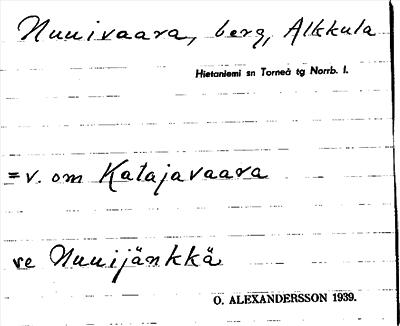 Nuuivaara, berg, Alkkula
Hietaniemi sn Torneå tg Norrb. l.
= v. om Katajavaara
se Nuuijänkkä
O. ALEXANDERSSON 1939.